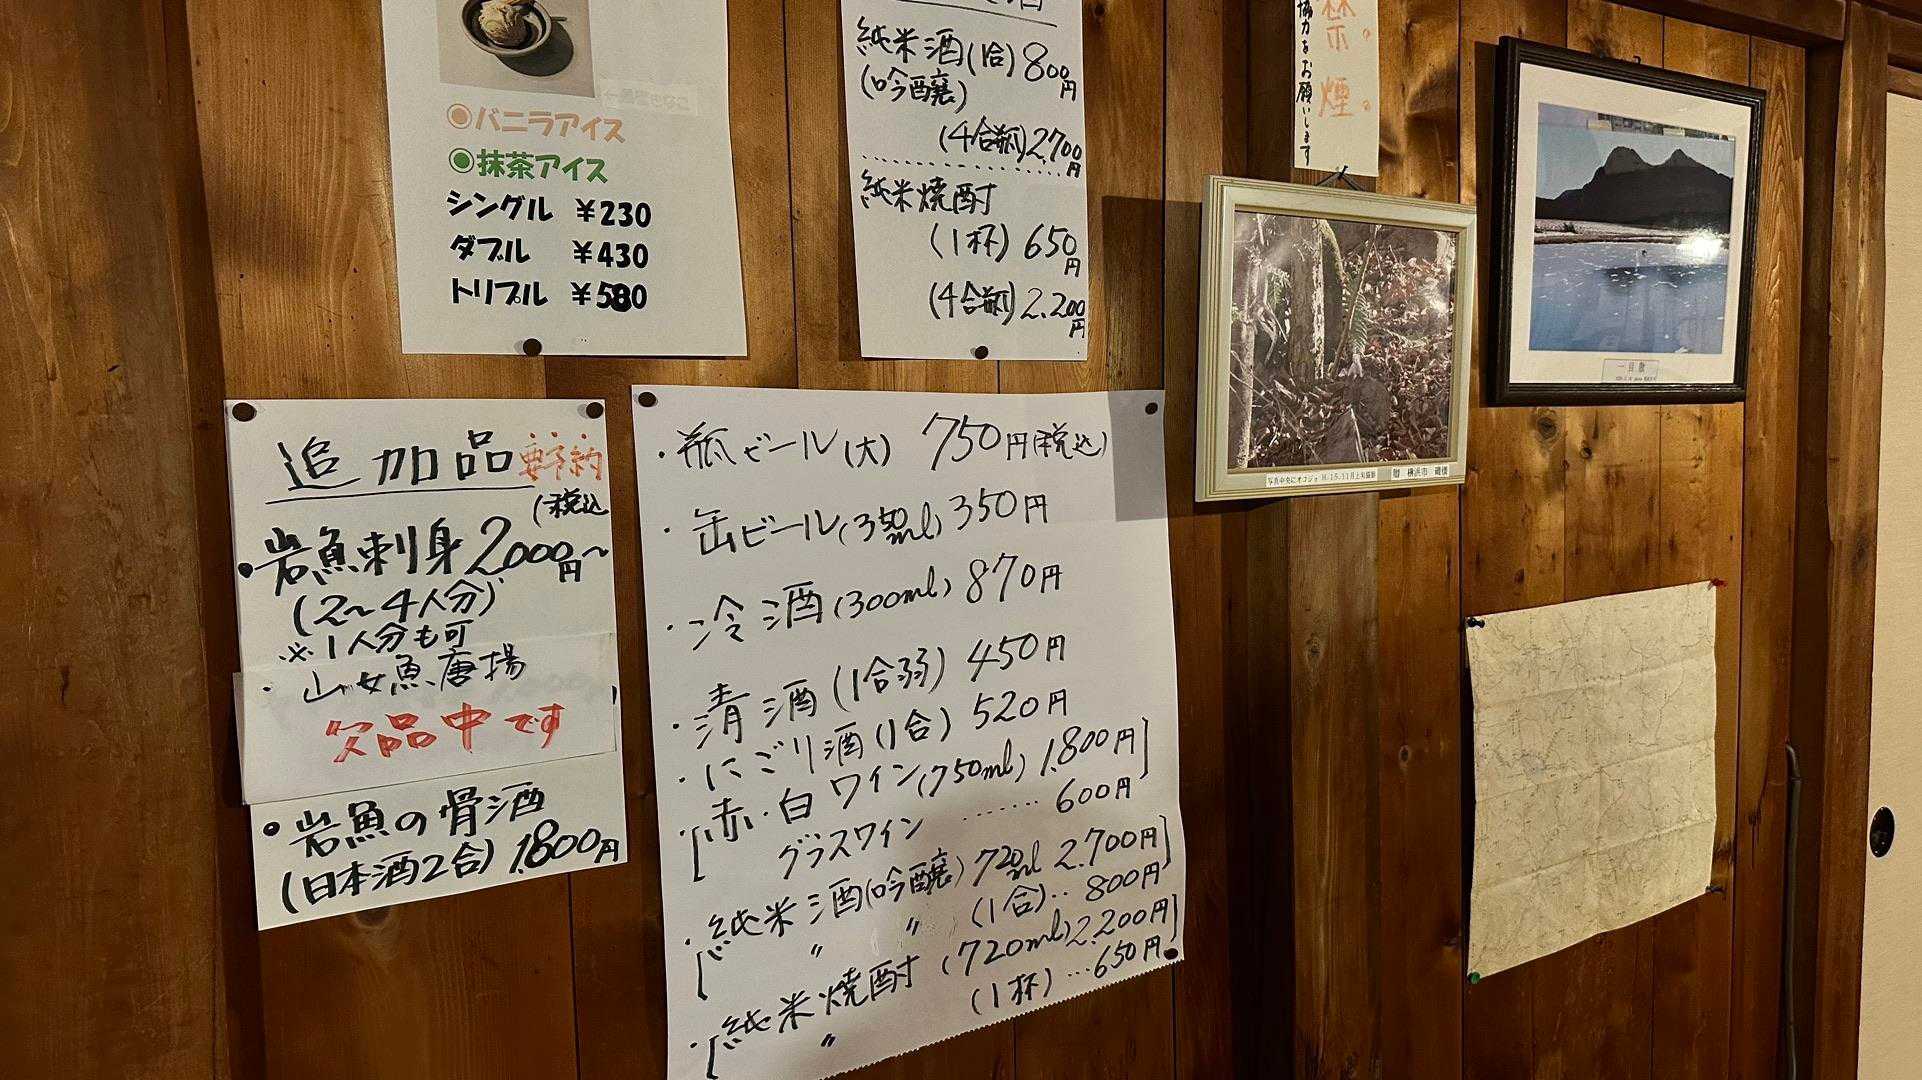 ◎バニラアイス
◎抹茶アイス
シングル ¥230
ダブル ¥430
トリプル ¥580
純米酒(1合) 800円
(吟醸)
(4合瓶) 2.700円
純米焼酎
(1杯) 650円
(4合瓶) 2.200円
禁煙
協力をお願いします
追加品 要予約
(税込
・岩魚刺身 2000円~
(2~4人分)
※1人分も可
・山女魚唐揚
欠品中です
・岩魚の骨酒
(日本酒2合) 1.800円
・瓶ビール(大) 750円(税込)
・缶ビール(350ml) 350円
・冷酒(300ml) 870円
・清酒(1合弱) 450円
・にごり酒(1合) 520円
・赤・白ワイン(750ml) 1.800円
グラスワイン …… 600円
・純米酒(吟醸) 720ml 2.700円
〃 〃 (1合)‥ 800円
・純米焼酎 (720ml) 2.200円
〃 (1杯) …650円
写真中央にオコジョ H.15.11月上旬撮影
贈 横浜市 磯様